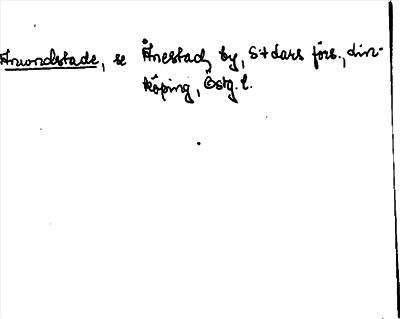 Anwondstade, se Ånestad, by, S:t Lars förs., Lin-
köping, Östg. l.